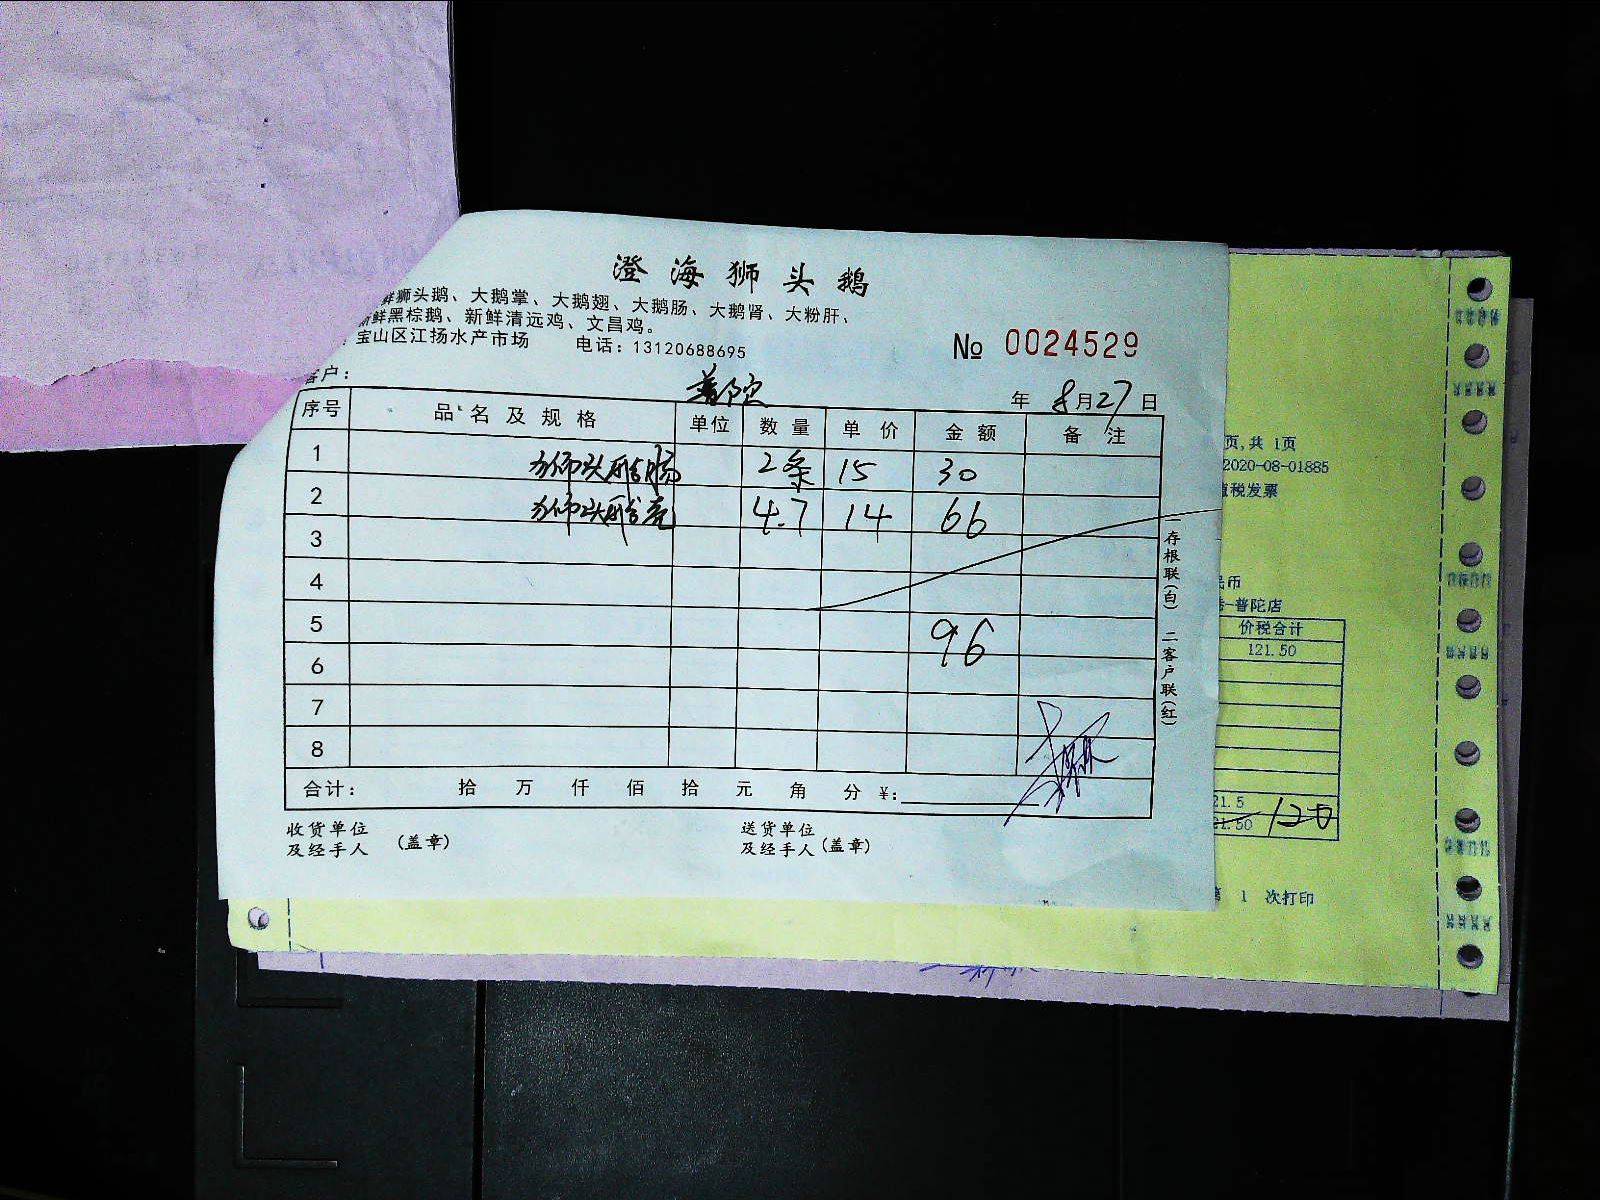 澄海狮头鹅
鲜狮头鹅、大鹅掌、大鹅翅、大鹅肠、大鹅肾、大粉肝、
鲜黑棕鹅、新鲜清远鸡、文昌鸡。
宝山区江扬水产市场 电话：13120688695
№ 0024529
客户： 普陀 年 8月27日
序号 品名及规格 单位 数量 单价 金额 备注
1 狮头鹅肠 2条 15 30
2 狮头鹅壳 4.7 14 66
3
4
5 96
6
7
8
合计： 拾 万 仟 佰 拾 元 角 分 ¥:
收货单位 送货单位
及经手人 (盖章) 及经手人 (盖章)
一存根联(白) 二客户联(红)
页,共 1页
2020-08-01885
值税发票
民币
-普陀店
价税合计
121.50
21.5
21.50 120
第 1 次打印